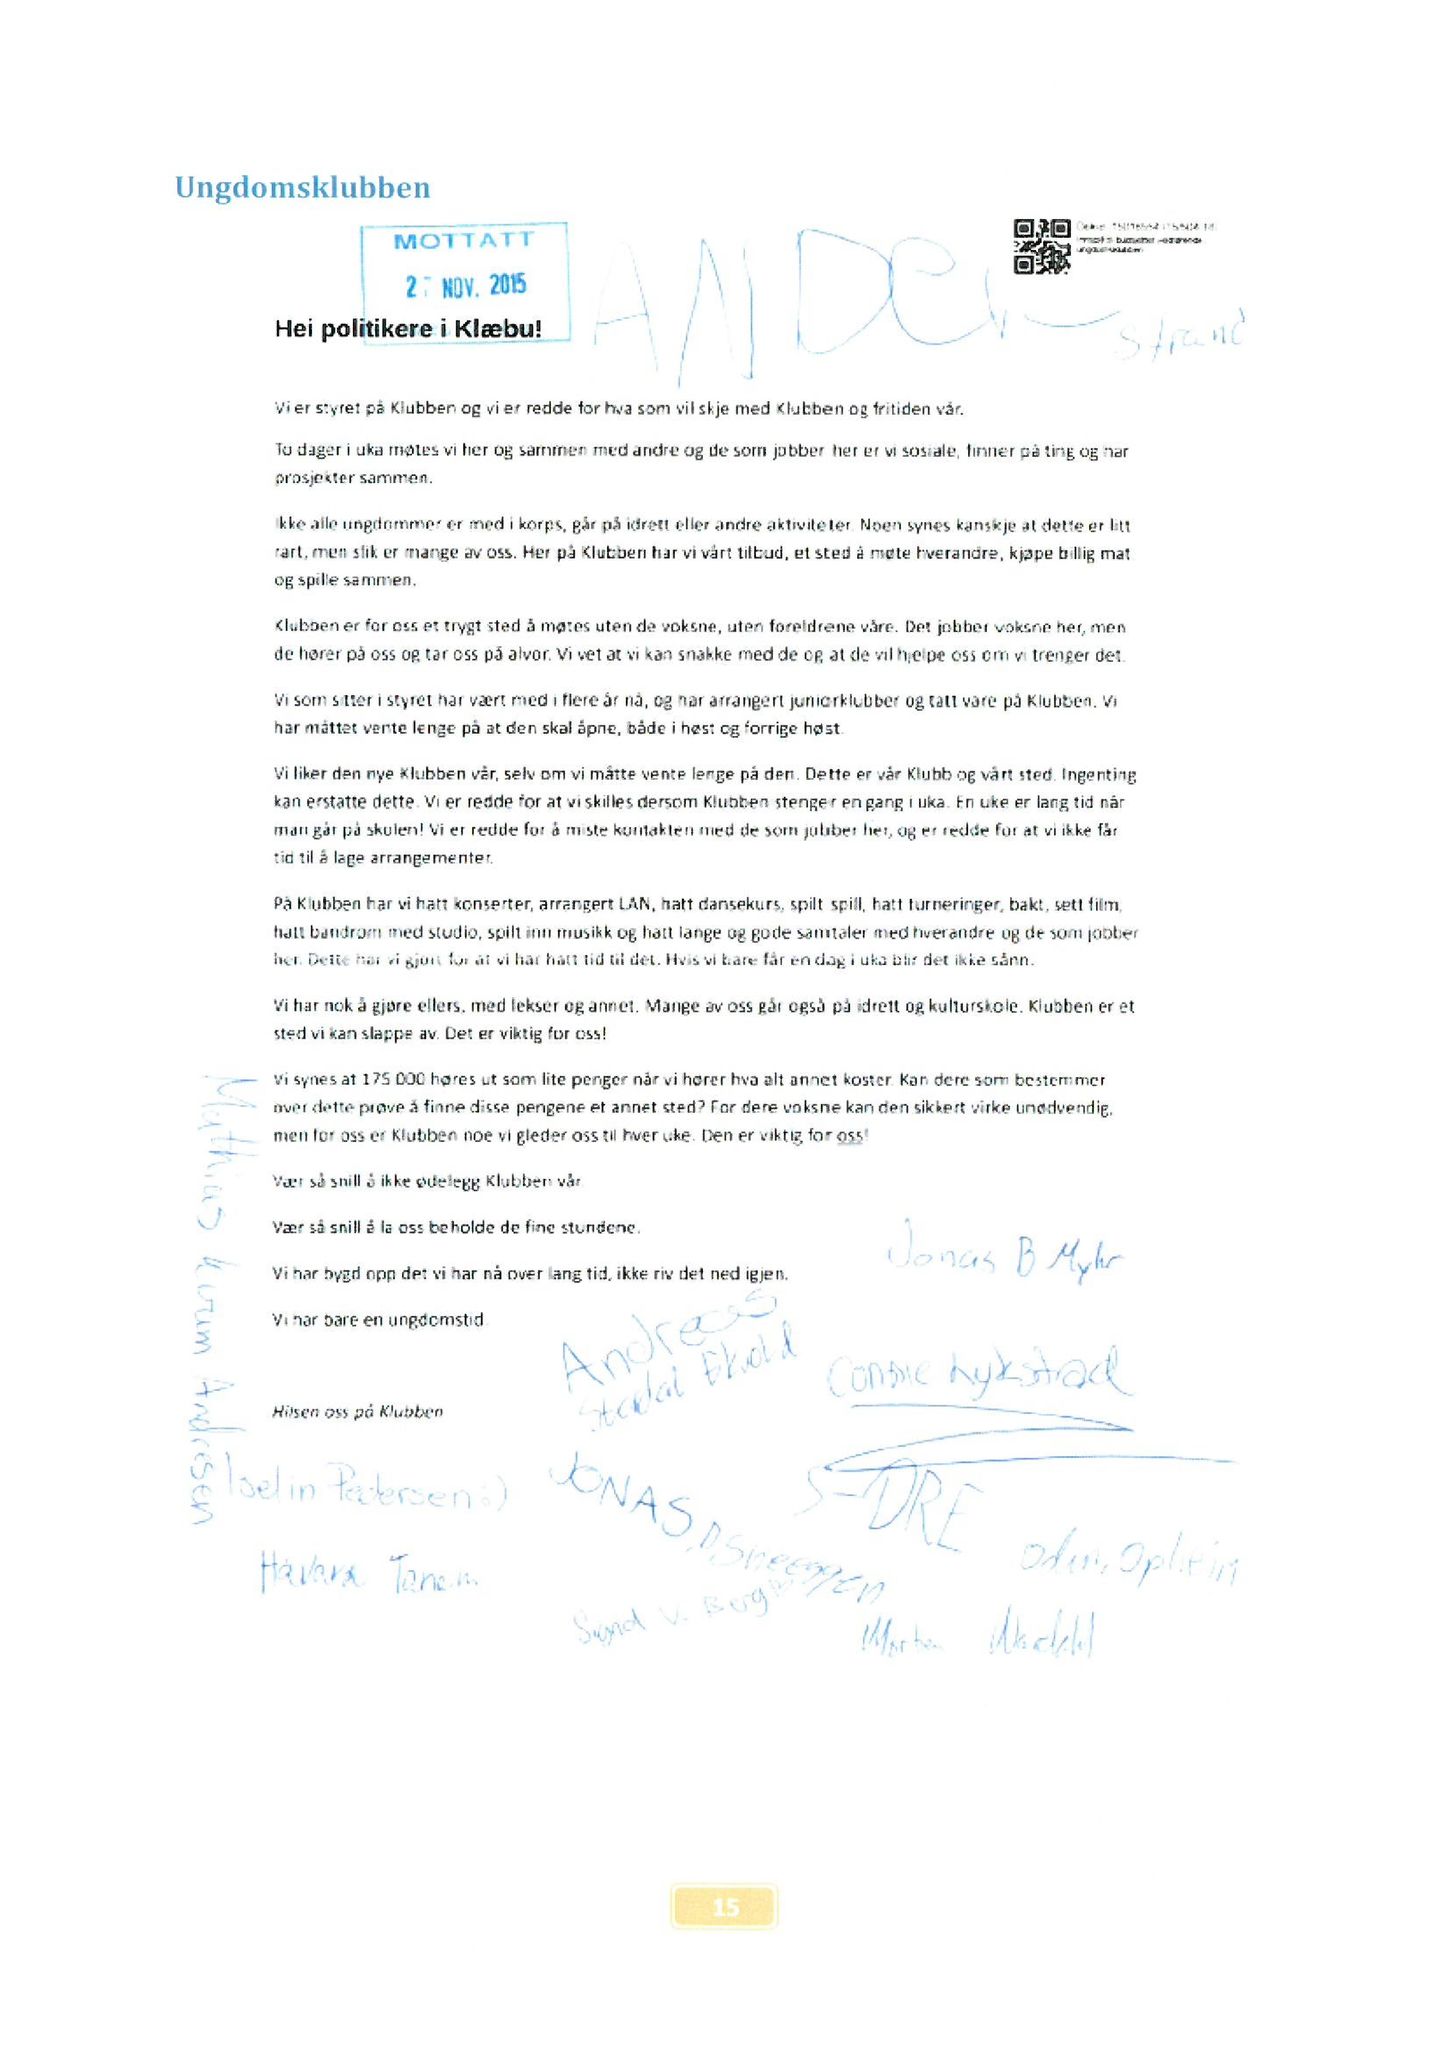 Ungdomsklubben
MOTTATT
2 NOV. 2015
ANDE
Strand
Hei politikere i Klæbu!
Vi er styret på Klubben og vi er redde for hva som vil skje med Klubben og fritiden vår.
To dager i uka møtes vi her og sammen med andre og de som jobber her er vi sosiale, finner på ting og har
prosjekter sammen.
Ikke alle ungdommer er med i korps, går på idrett eller andre aktiviteter. Noen synes kanskje at dette er litt
rart, men slik er mange av oss. Her på Klubben har vi vårt tilbud, et sted å møte hverandre, kjøpe billig mat
og spille sammen.
Klubben er for oss et trygt sted å møtes uten de voksne, uten foreldrene våre. Det jobber voksne her, men
de hører på oss og tar oss på alvor. Vi vet at vi kan snakke med de og at de vil hjelpe oss om vi trenger det.
Vi som sitter i styret har vært med i flere år nå, og har arrangert juniorklubber og tatt vare på Klubben. Vi
har måttet vente lenge på at den skal åpne, både i høst og forrige høst.
Vi liker den nye Klubben vår, selv om vi måtte vente lenge på den. Dette er vår Klubb og vårt sted. Ingenting
kan erstatte dette. Vi er redde for at vi skilles dersom Klubben stenger en gang i uka. En uke er lang tid når
man går på skolen! Vi er redde for å miste kontakten med de som jobber her, og er redde for at vi ikke får
tid til å lage arrangementer.
På Klubben har vi hatt konserter, arrangert LAN, hatt dansekurs, spilt spill, hatt turneringer, bakt, sett film,
hatt bandrom med studio, spilt inn musikk og hatt lange og gode samtaler med hverandre og de som jobber
her. Dette har vi gjort for at vi har hatt tid til det. Hvis vi bare får en dag i uka blir det ikke sånn.
Vi har nok å gjøre ellers, med lekser og annet. Mange av oss går også på idrett og kulturskole. Klubben er et
sted vi kan slappe av. Det er viktig for oss!
Vi synes at 175 000 høres ut som lite penger når vi hører hva alt annet koster. Kan dere som bestemmer
over dette prøve å finne disse pengene et annet sted? For dere voksne kan den sikkert virke unødvendig,
men for oss er Klubben noe vi gleder oss til hver uke. Den er viktig for oss!
Vær så snill å ikke ødelegg Klubben vår
Vær så snill å la oss beholde de fine stundene.
Vi har bygd opp det vi har nå over lang tid, ikke riv det ned igjen.
Vi har bare en ungdomstid.
Hilsen oss på Klubben
Mathias Andresen
Jonas B Myhr
Andreas
Connie Lykstad
Iselin Pedersen :)
JONAS
S-DRE
Håvard Tanem
Odin Opheim
V. Berg
Morten
15